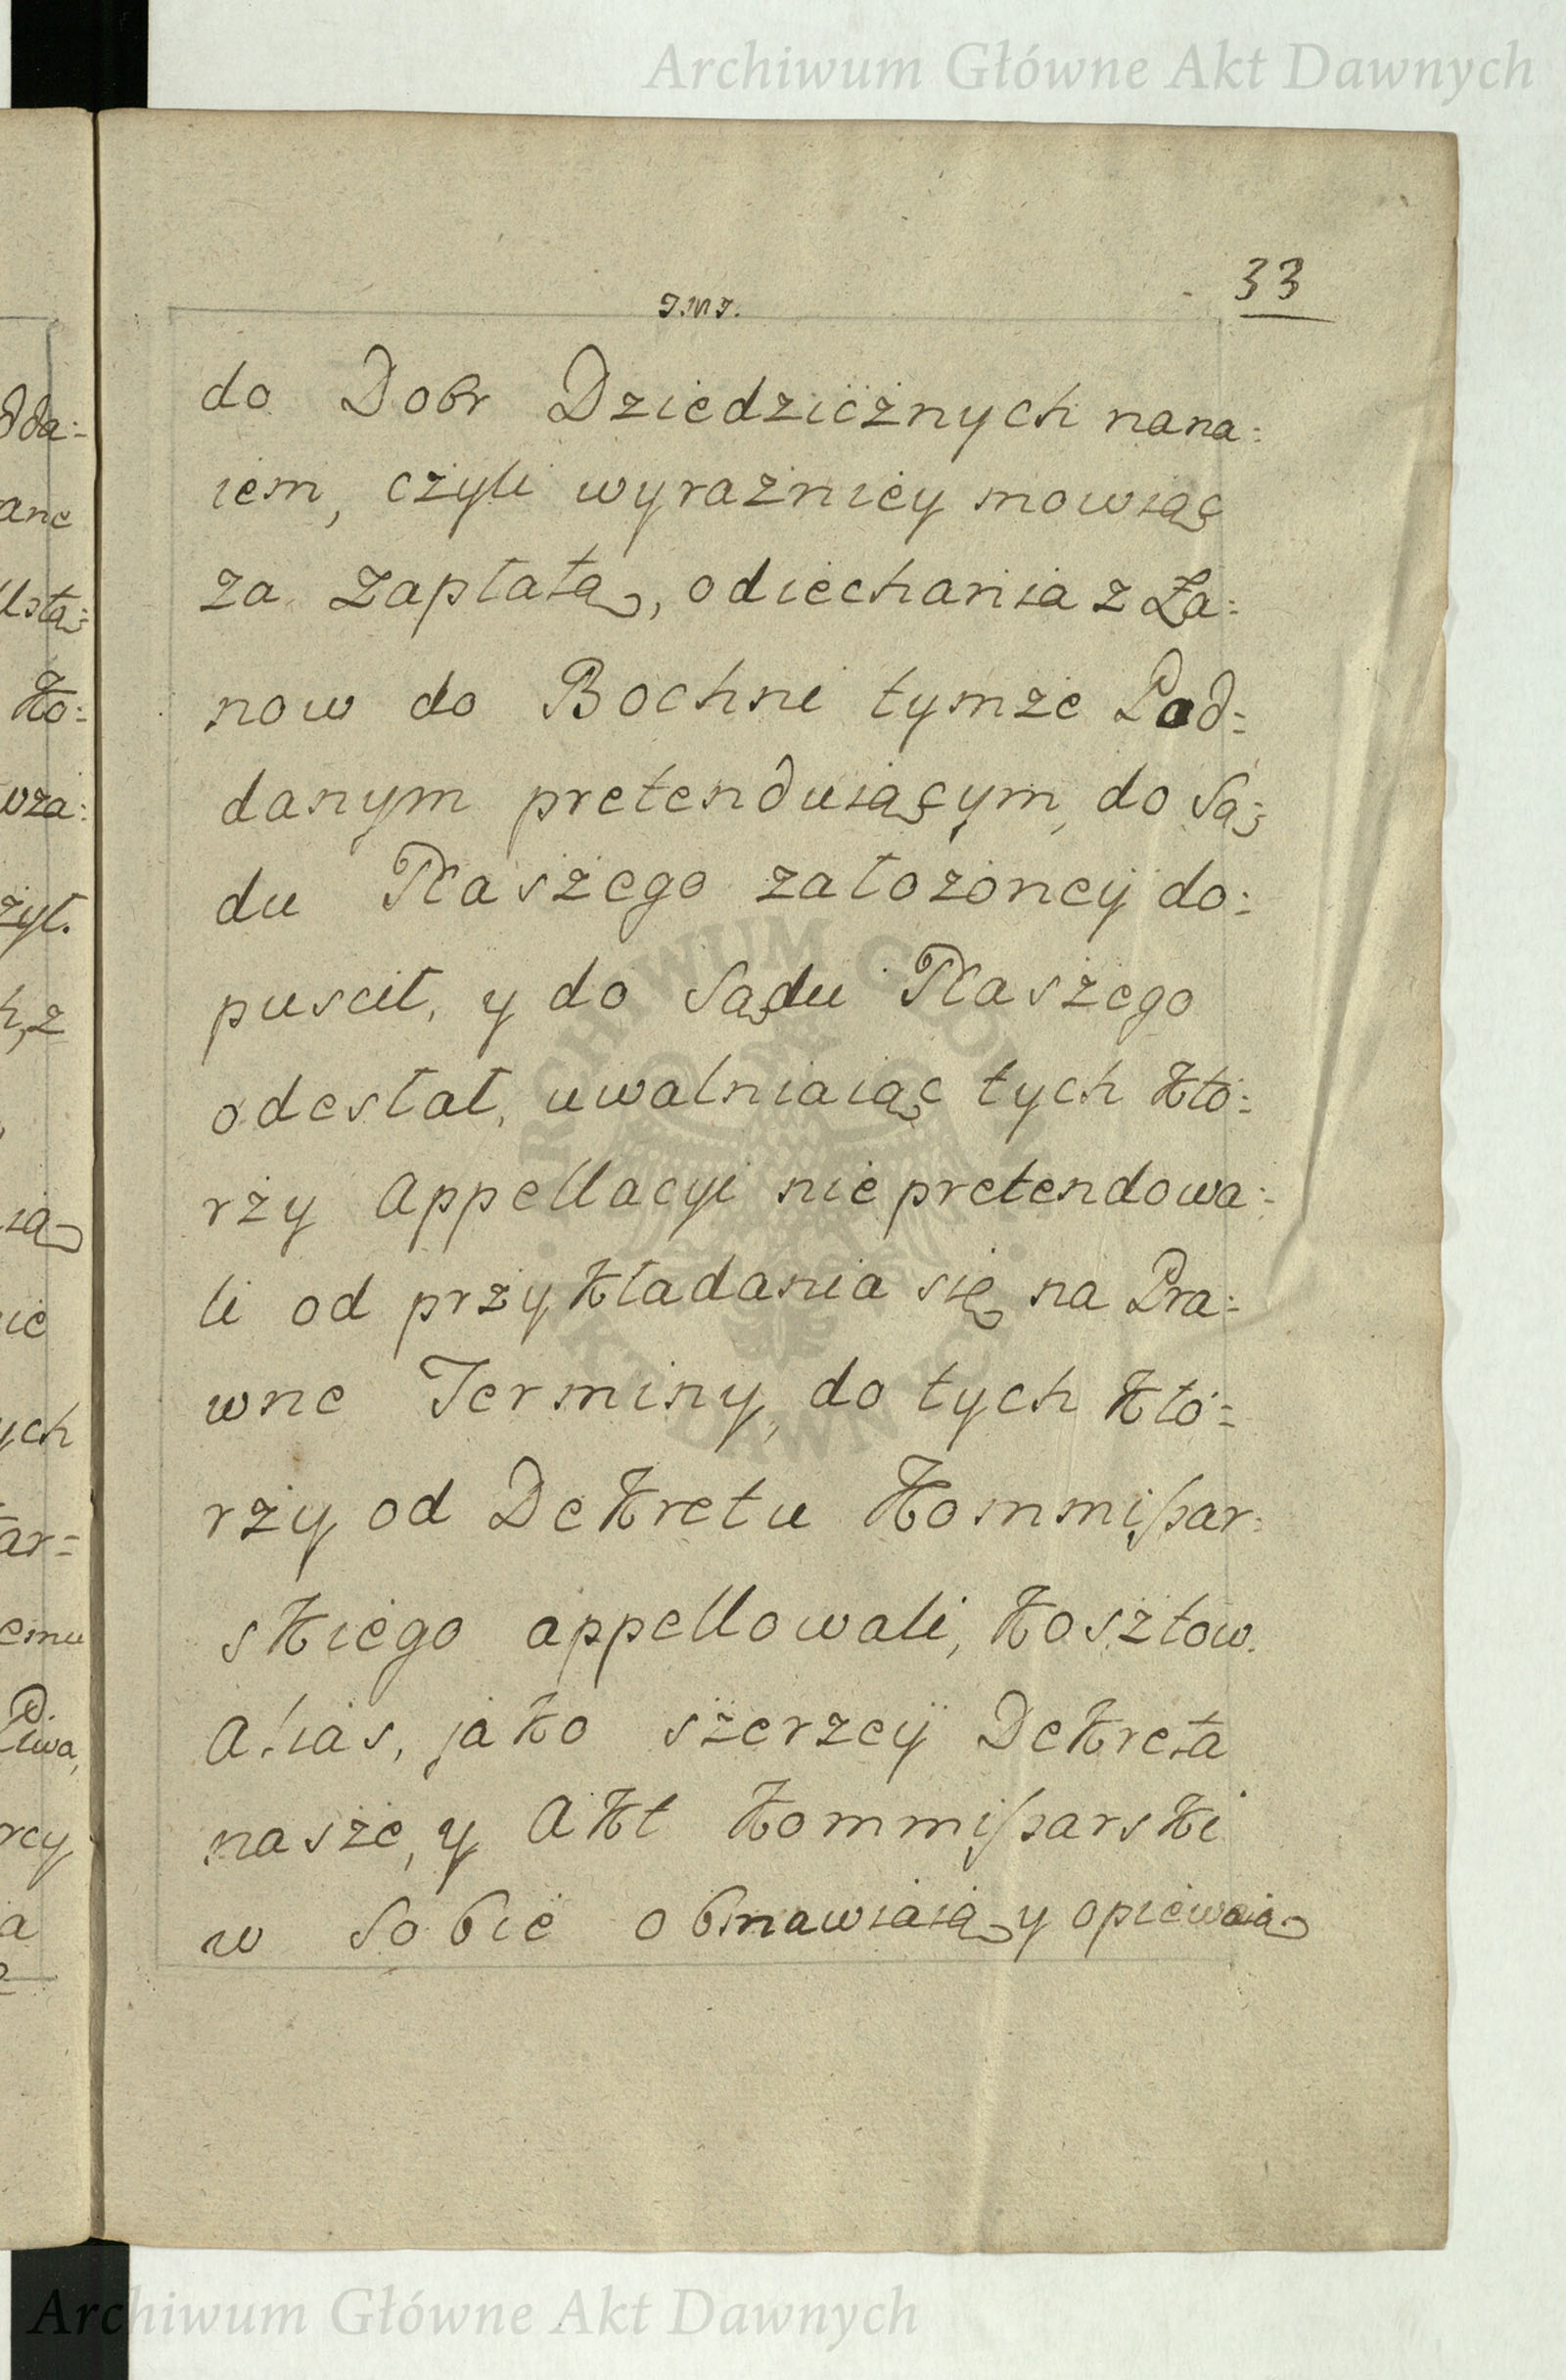 Archiwum Główne Akt Dawnych
33
J.M.J.
do Dobr Dziedzicznych nana=
iem, czyli wyrazniey mowiąc
za zapłatą, odiechania z Ła=
now do Bochni tymże Pod=
danym pretenduiącym, do Są=
du Naszego założoney do=
puscił, y do Sądu Naszego
odesłał, uwalniaiąc tych któ=
rzy Appellacyi nie pretendowa=
li od przykładania się na Pra=
wne Terminy, do tych któ=
rzy od Dekretu Kommißar=
skiego appellowali, kosztow.
Alias, jako szerzey Dekreta
nasze, y Akt Kommißarski
w Sobie obmawiaią y opiewaią
dda=
ane
Usta=
Ko=
wza=
żył.
h, z
ią
ie
ych
ar=
emu
rcy
a
ARCHIWUM GŁÓWNE AKT DAWNYCH
Archiwum Główne Akt Dawnych